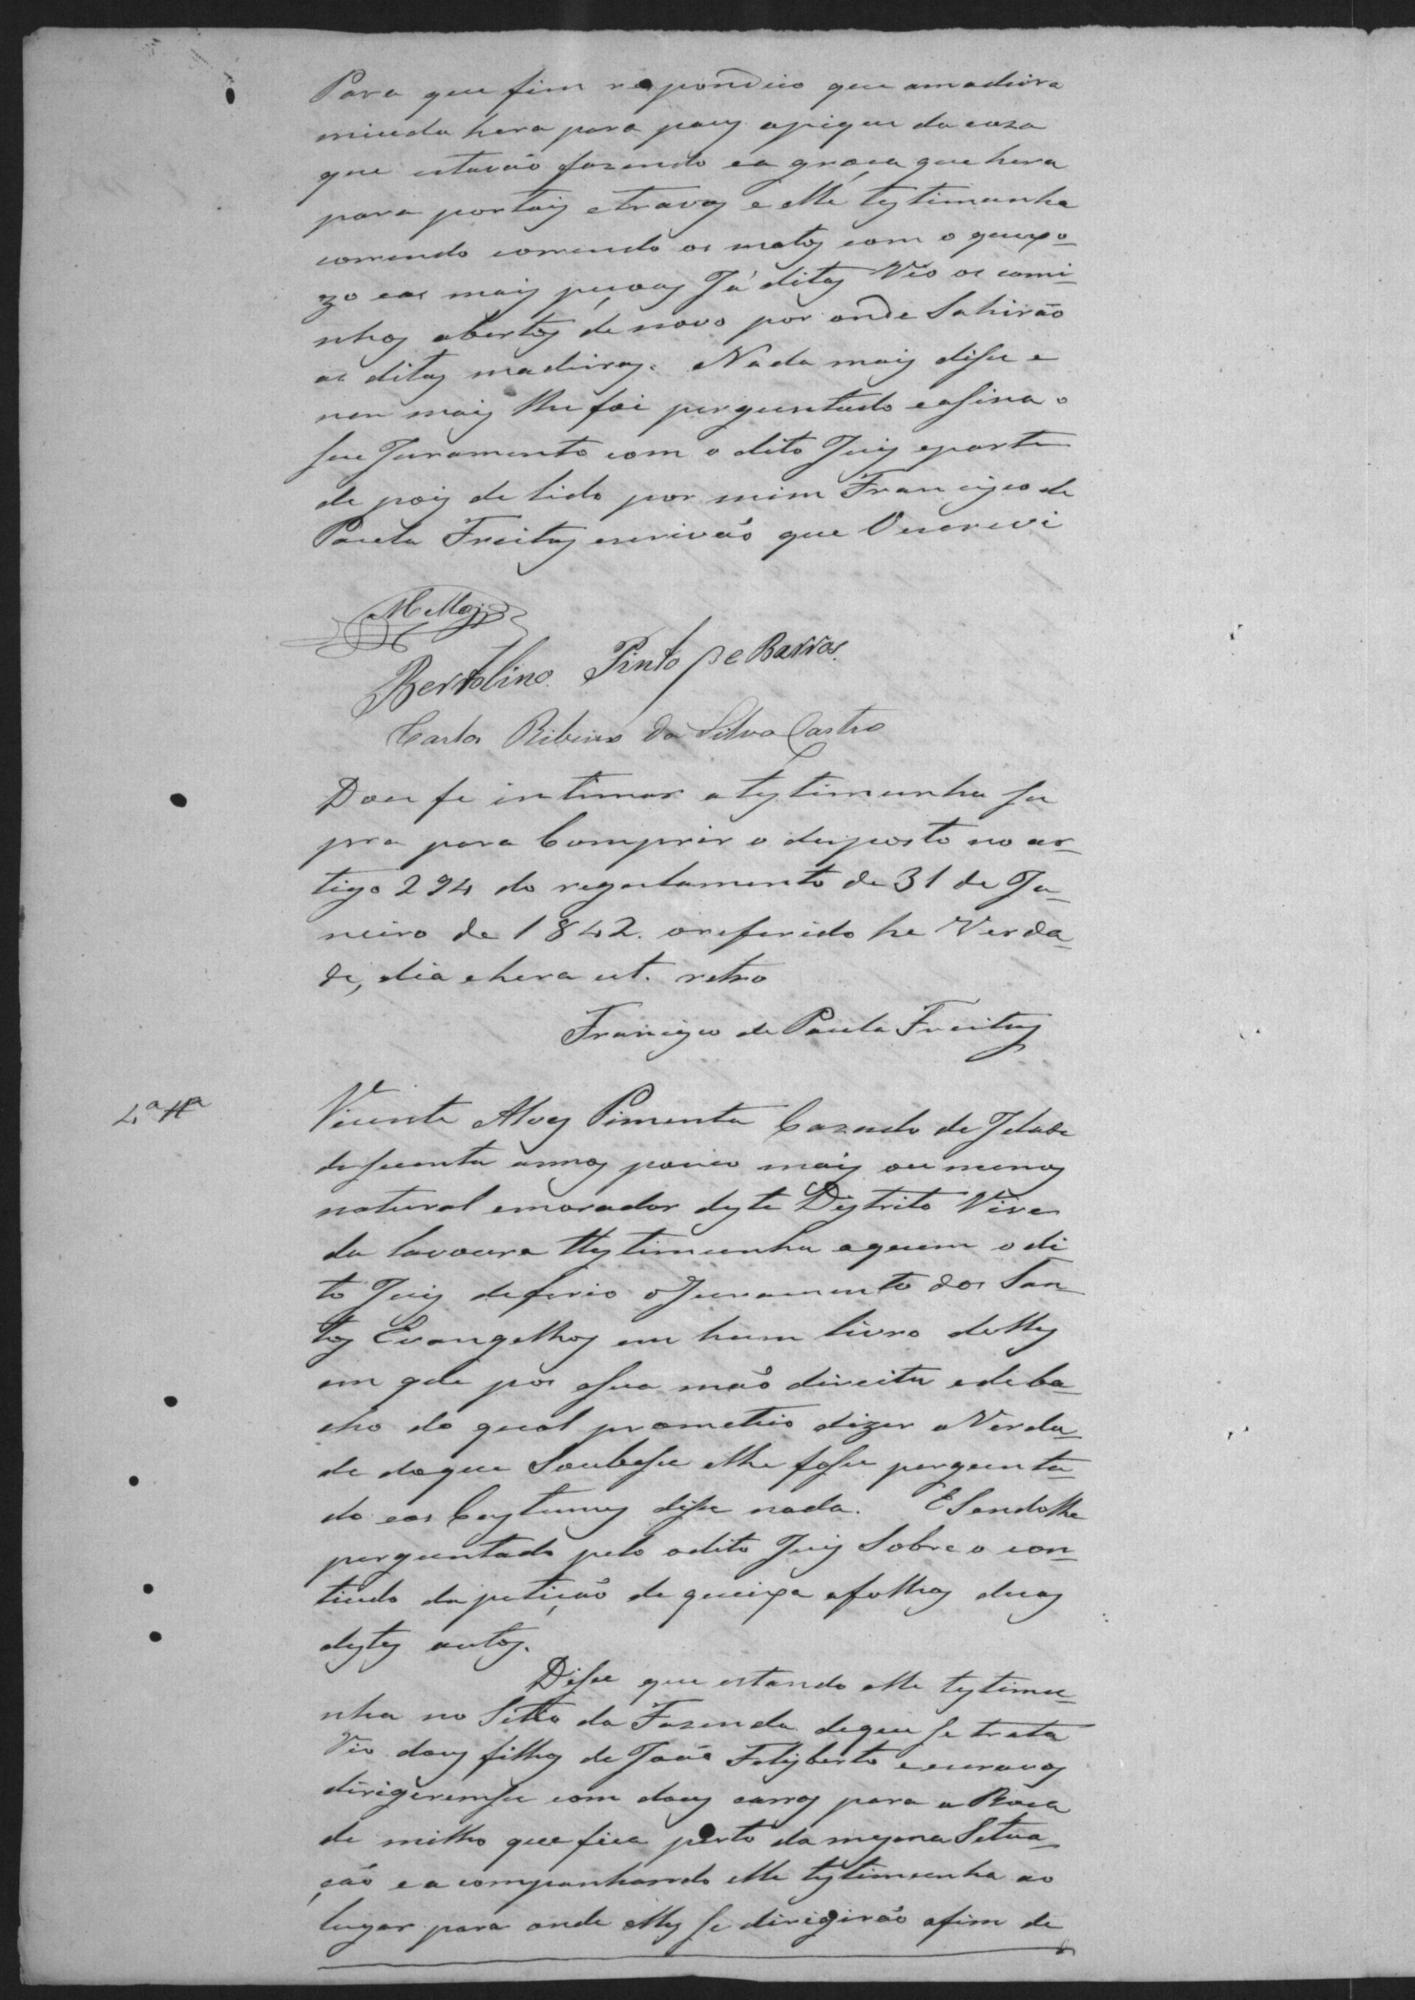 Para que fim respondeo que amadeira
miuda hera para paos apique da caza
que estavão fazendo ea groça que hera
para portais etraves e elle testimunha
correndo correndo os matos com o queixo-
zo eas mais peçoas Já ditas Vio os cami-
nhos abertos de novo por onde Sahirão
as ditas madeiras. Nada mais dise e
nen mais lhe foi perguntado easina o
seu Juramento com o dito Juis eparte
de pois de lido por mim Francisco de
Paula Freitas escrivão que Oescrevi
Bertolino Pinto de Barros
Carlos Ribeiro da Silva Castro
Dou fe intimar atestimunha su
pra para Comprir o disposto no ar-
tigo 294 do regulamento de 31 de Ja-
neiro de 1842. oreferido he Verda-
de, dia ehera ut. retro
Francisco de Paula Freitas
4ª Tª
Vicente Alves Pimenta Cazado de Idade
desecenta annos pouco mais ou menos
natural emorador deste Destrito Vive
da lavoura ttestimunha aquem o di
to Juis deferio oJuramento dos San
tos Evangelhos em hum livro delles
em que pos asua mão direita edeba-
cho do qual prometeo dizer aVerda-
de doque Soubese elhe fose pergunta-
do eos Custumes dise nada. ESendolhe
perguntado pelo odito Juis Sobre o con-
tiudo da petição de queixa afolhas duas
destes autos.
Dise que estando elle testimu-
nha no Sitio da Fazenda deque se trata
Vio dous filhos de João Felisberto e escravos
dirigeremse com dous carros para a Roca
de milho que fica perto da mesma Setua-
ção e acompanhando elle testimunha ao
lugar para onde elles se dirigirão afim de